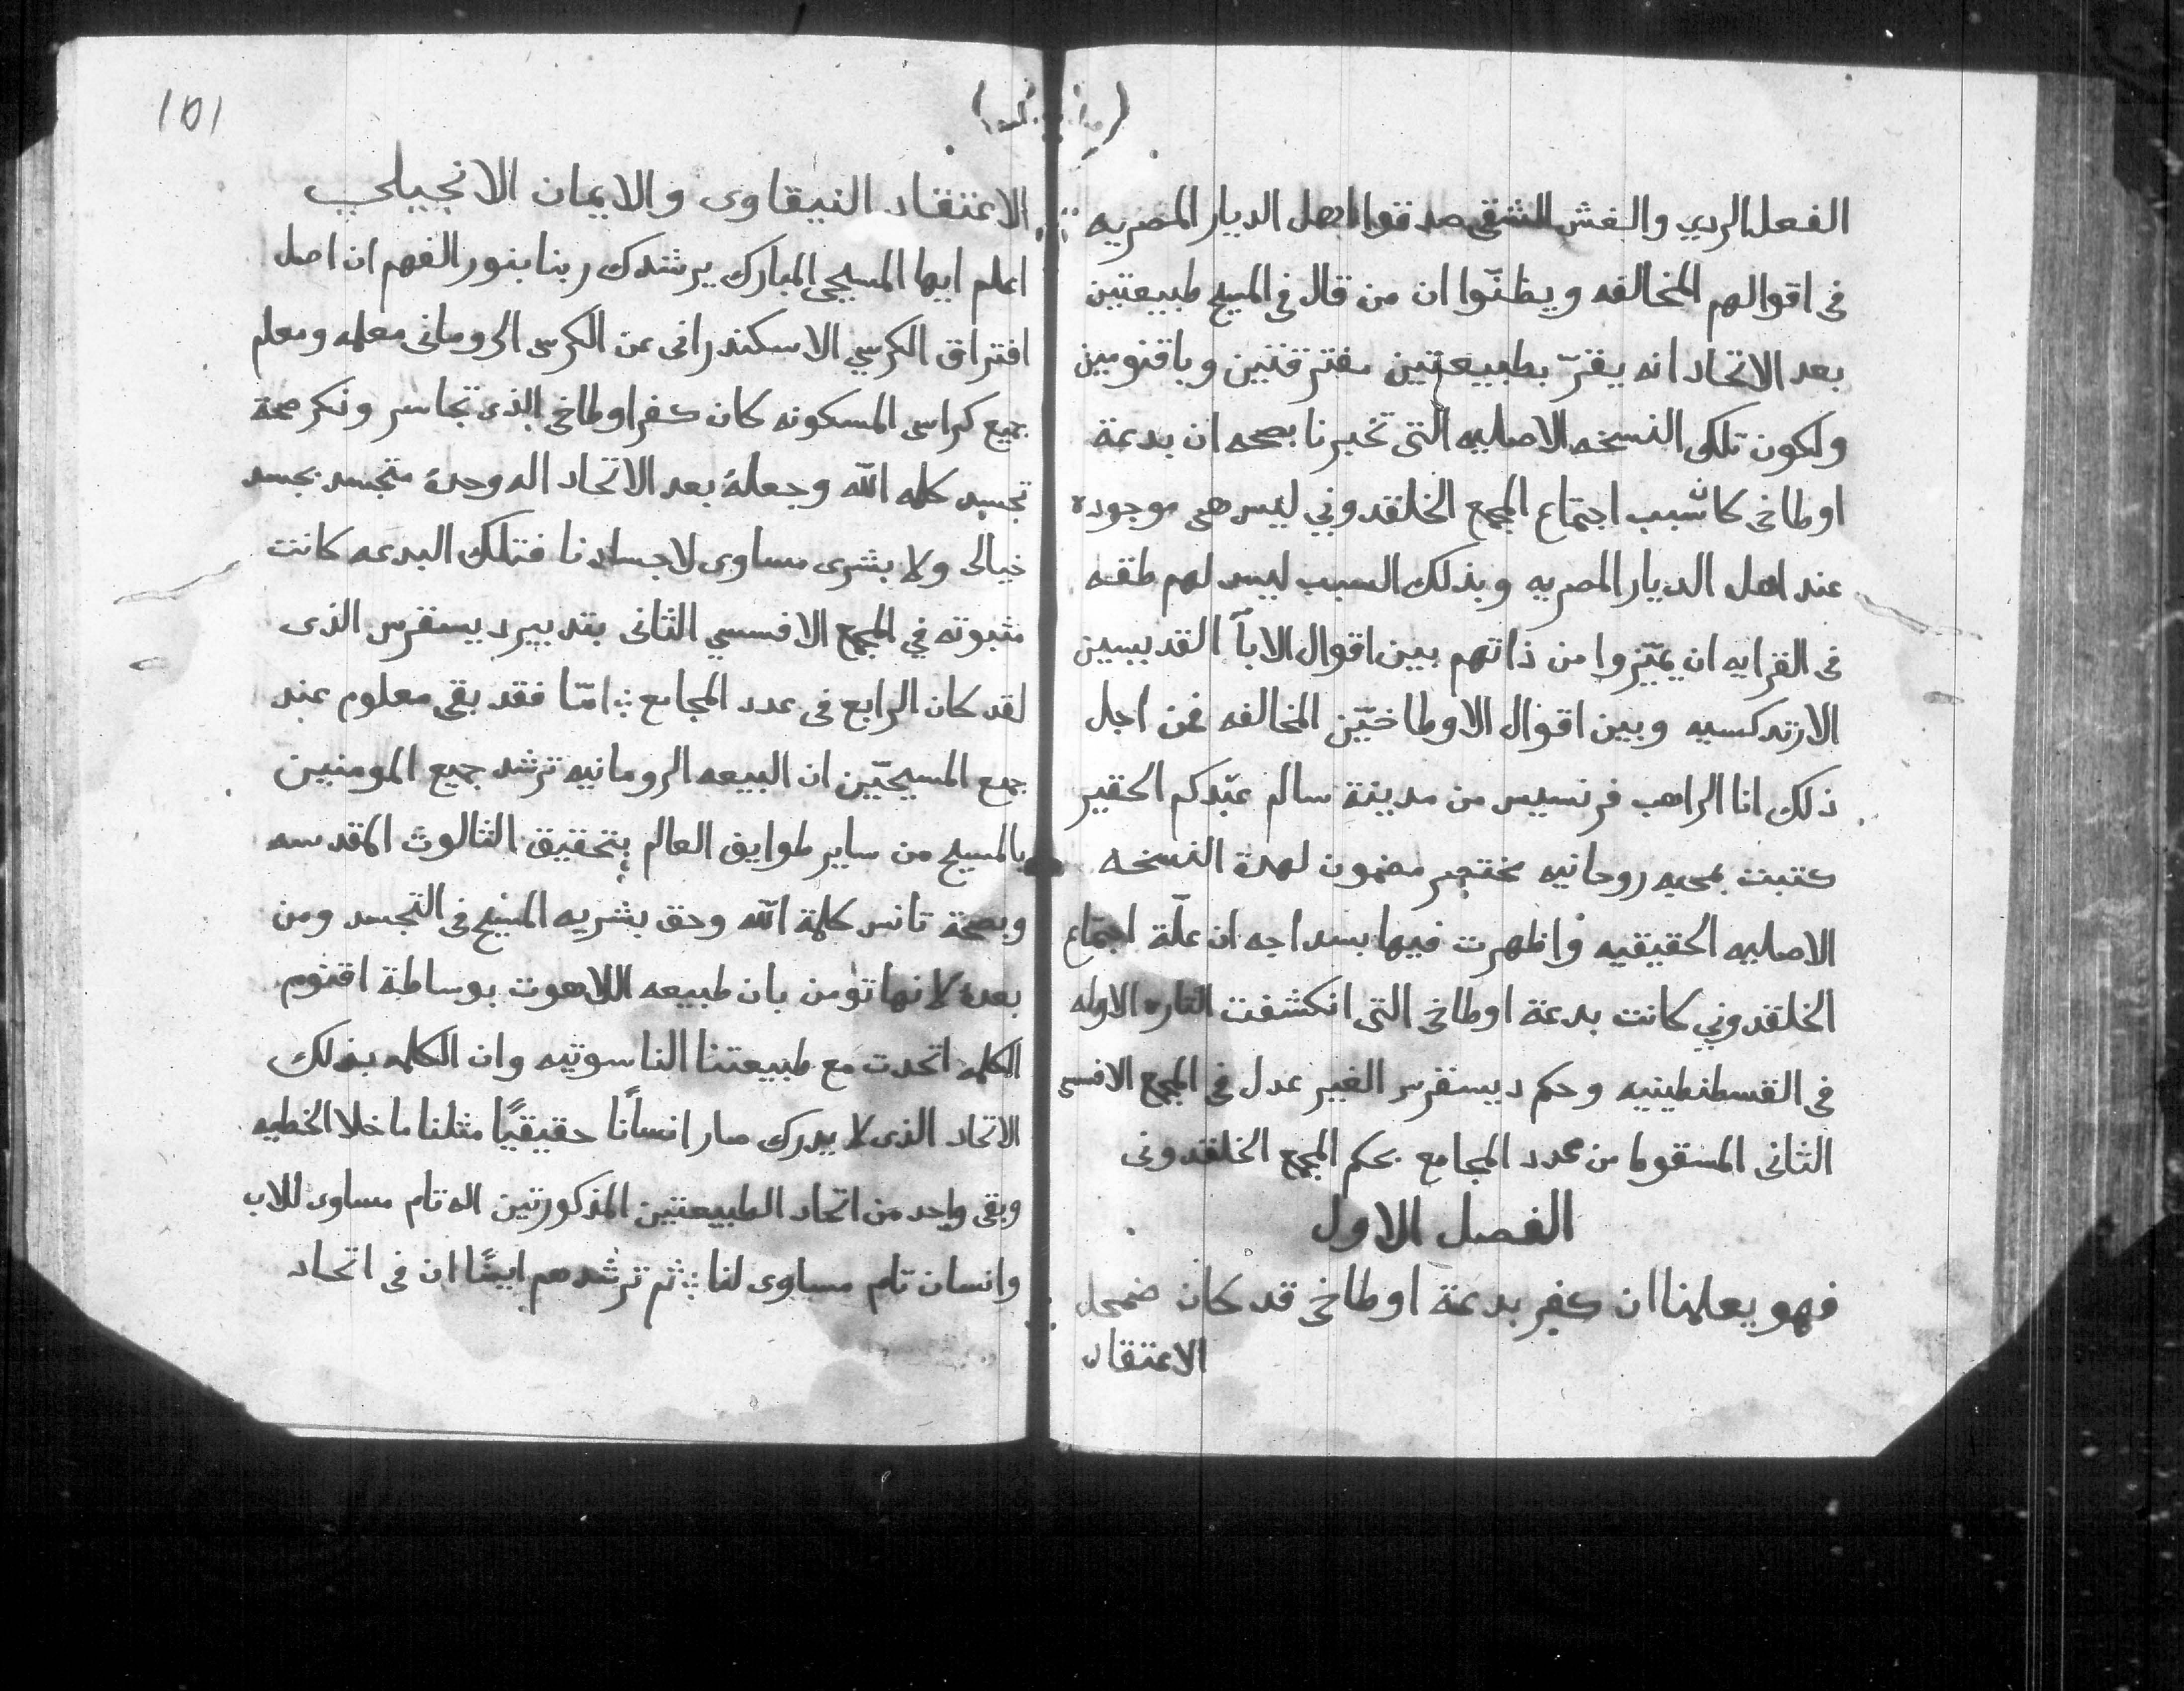 الفعل الردي والغش الشقي صدقوا اهل الديار المصريه
فى اقوالهم المخالفه ويظنّوا ان من قال فى المسيح طبيعتين
بعد الاتحاد انه يقرّ بطبيعتين مفترقتين وباقنومين
ولكون تلك النسخه الاصليه التى تخبرنا بصحه ان بدعة
اوطاخى كان سبب اجتماع المجمع الخلقدوني ليس هى موجوده
عند اهل الديار المصريه وبذلك السبب ليس لهم طقه
فى القرايه ان يميّزوا من ذاتهم بين اقوال الابآ القديسين
الارتدكسيه وبين اقوال الاوطاخيّين المخالفه فمن اجل
ذلك انا الراهب فرنسيس من مدينة سالم عبّدكم الحقير
كتبت بمحبه روحانيه مختصر مضمون لهده النسخه
الاصليه الحقيقيه واظهرت فيها بسداجه ان علّة اجتماع
الخلقدوني كانت بدعة اوطاخى التى انكشفت التاره الاوله
فى القسطنطينيه وحكم ديسقرس الغير عدل فى المجمع الافسسى
الثانى المسقوط من عدد المجامع بحكم المجمع الخلقدونى
الفصل الاول
فهو يعلمنا ان كفر بدعة اوطاخى قد كان ضمحل
الاعتقاد
101
الاعتقاد النيقاوى والايمان الانجيلي
اعلم ايها المسيحى المبارك يرشدك ربنا بنور الفهم ان اصل
افتراق الكرسي الاسكندرانى عن الكرسى الرومانى معلمه ومعلم
جميع كراسى المسكونه كان كفر اوطاخى الذى تجاسر ونكر صحة
تجسد كلمه الله وجعلهٔ بعد الاتحاد اله وحدهٔ متجسد بجسد
خيالى ولا بشرى مساوى لاجسادنا فتلك البدعه كانت
مثبوته في المجمع الافسسي الثانى بتدبير ديسقرس الذى
لقد كان الرابع فى عدد المجامع امّا فقد بقى معلوم عند
جمع المسيحيّين ان البيعه الرومانيه ترشد جميع المومنين
بالمسيح من ساير طوايف العالم بتحقيق الثالوث المقدسه
وبصحة تانس كلمة الله وحق بشريه المسيح فى التجسد ومن
بعدهٔ لانها تومن بان طبيعه اللاهوت بوساطة اقنوم
الكلمه اتحدت مع طبيعتنا الناسوتيه وان الكلمه بذلك
الاتحاد الذى لا يدرك صار انسانًا حقيقيًا مثلنا ماخلا الخطيه
وبقى واحد من اتحاد الطبيعتين المذكورتين اله تام مساوى للاب
وانسان تام مساوى لنا ثم ترشدهم ايضًا ان فى اتحاد